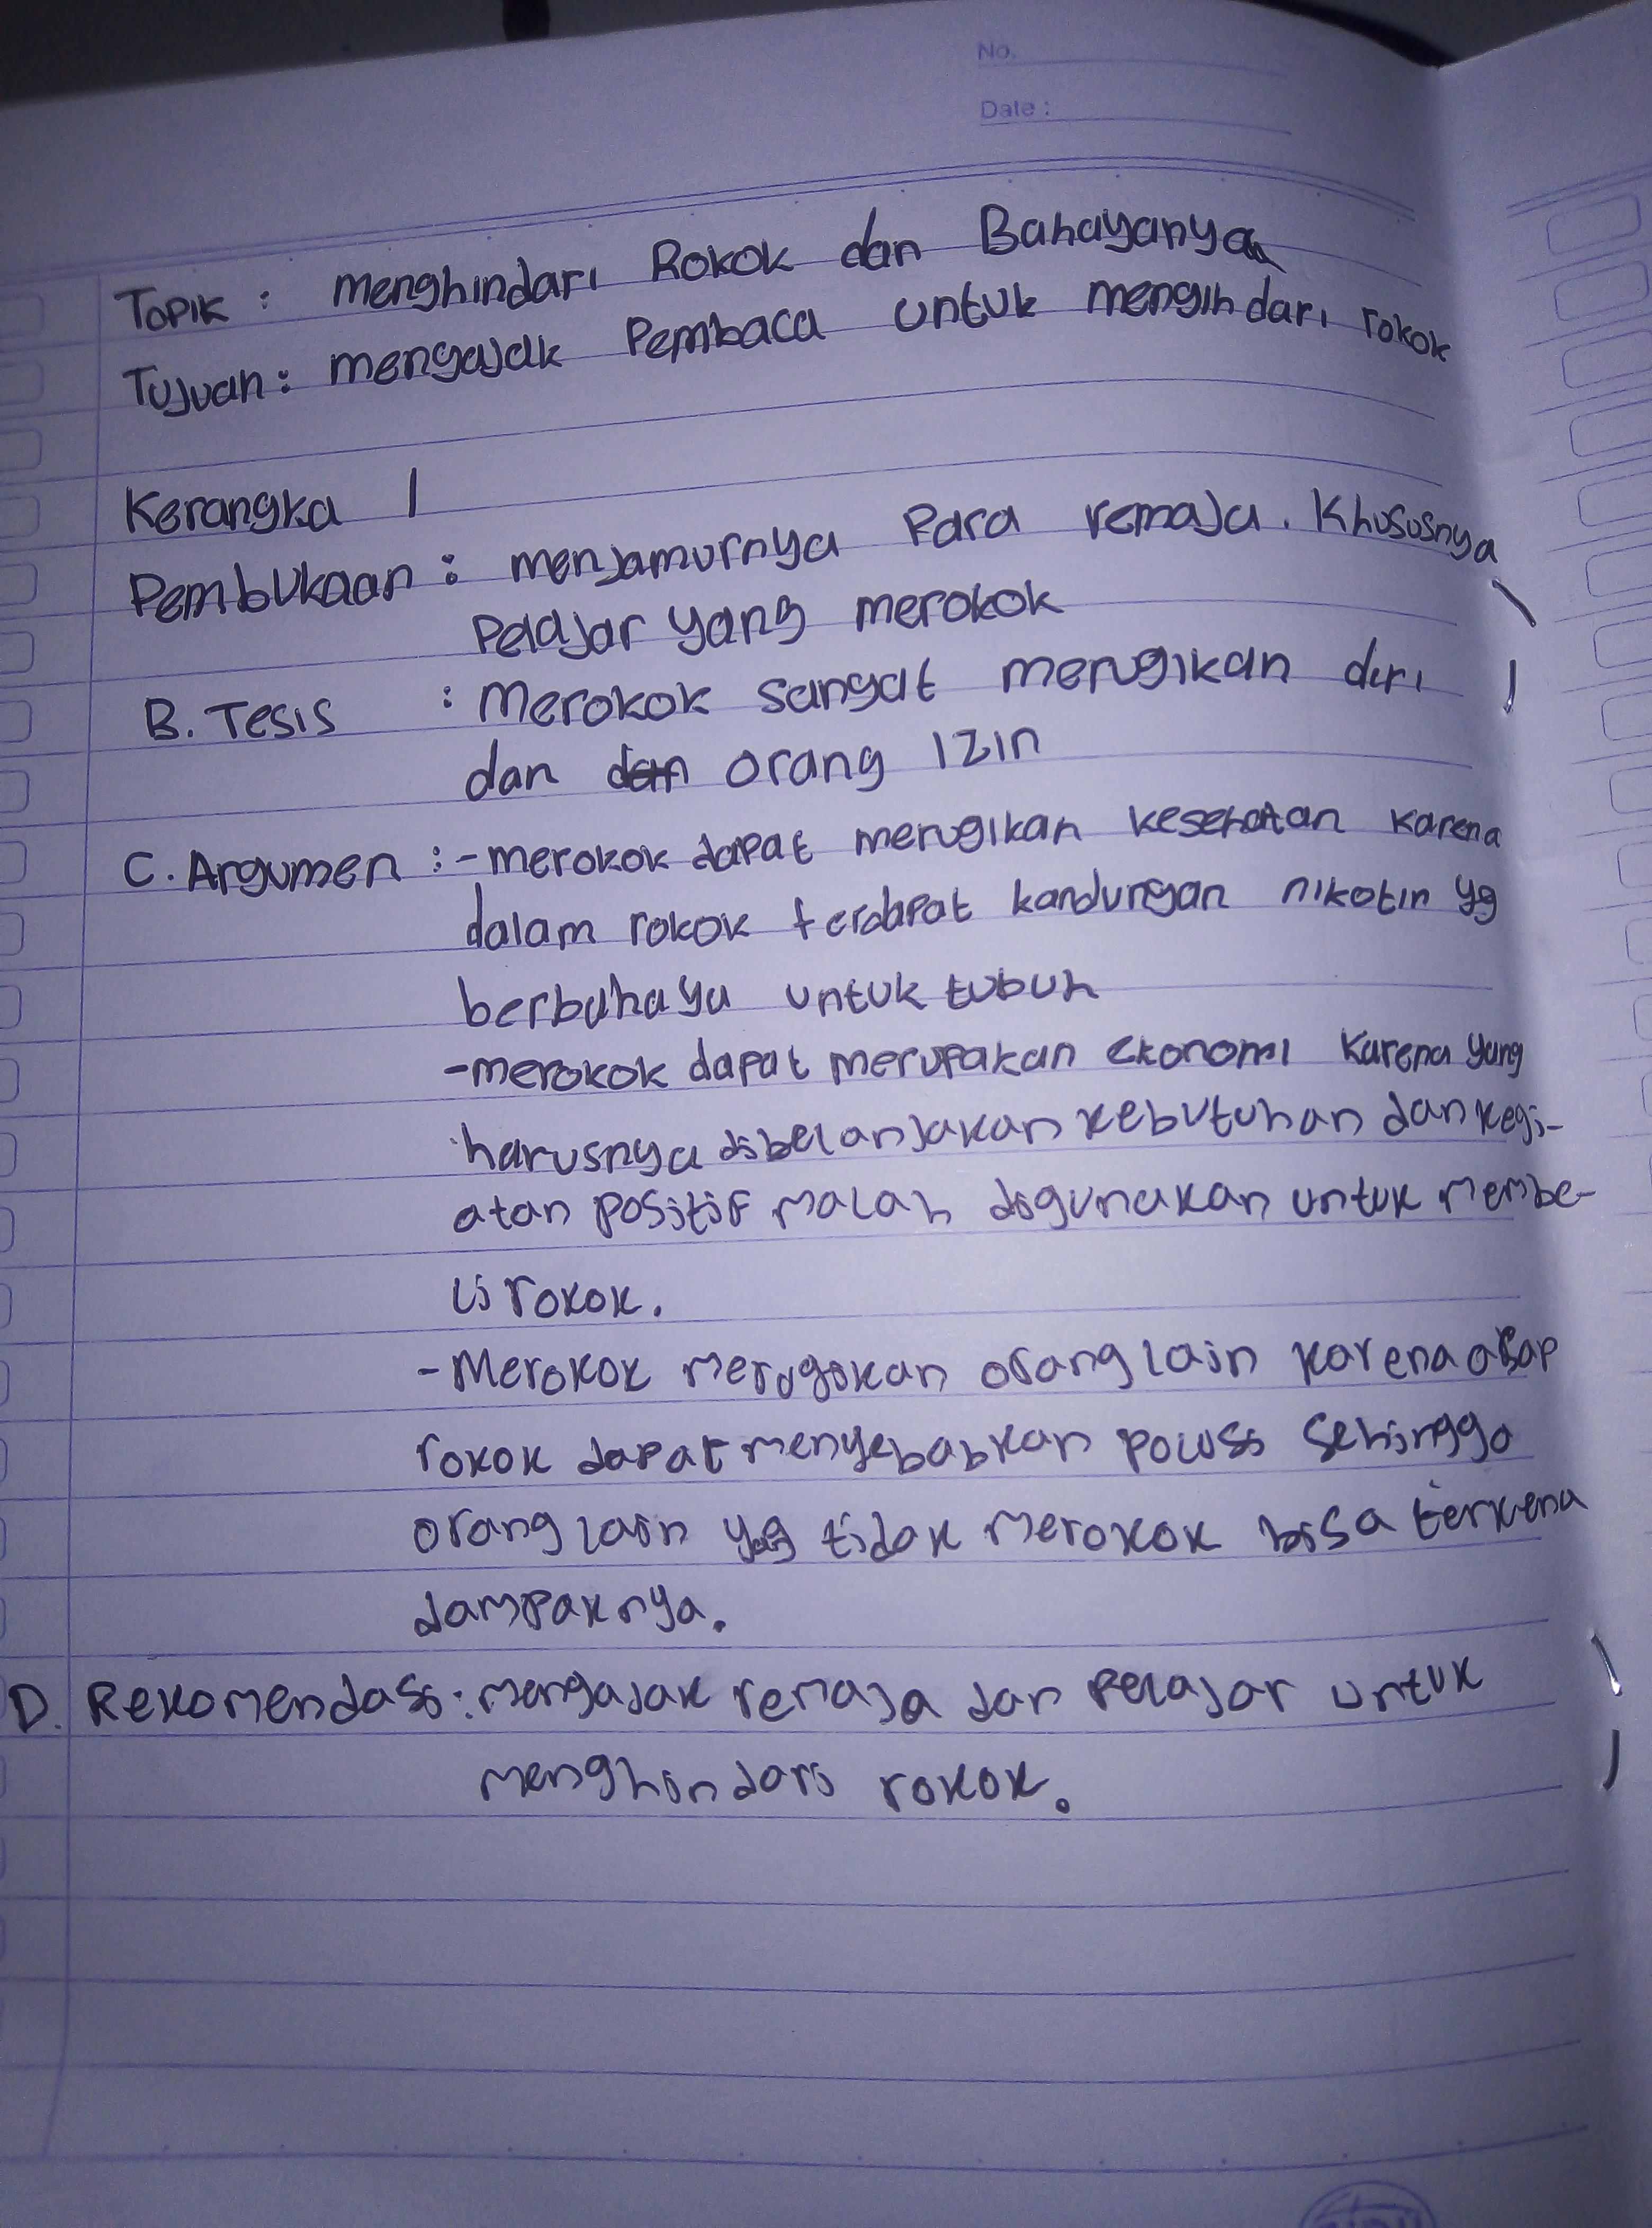 No.
Date :
Topik : menghindari Rokok dan Bahayanya
Tujuan : mengajak Pembaca untuk mengindari rokok
Kerangka 1
Pembukaan : menjamurnya Para remaja. Khususnya
Pelajar yang merokok
B. Tesis : Merokok sangat merugikan diri
dan dan orang lzin
C. Argumen : - merokok dapat merugikan kesehatan karena
dalam rokok terdapat kandungan nikotin yg
berbahaya untuk tubuh
- merokok dapat merupakan ekonomi karena yang
harusnya dibelanjakan kebutuhan dan kegi-
atan positif malah digunakan untuk membe-
li rokok.
- Merokok merugikan orang lain karena asap
rokok dapat menyebabkan polusi sehingga
orang lain yg tidak merokok bisa terkena
dampaknya.
D. Rekomendasi : mengajak remaja dan pelajar untuk
menghindari rokok.